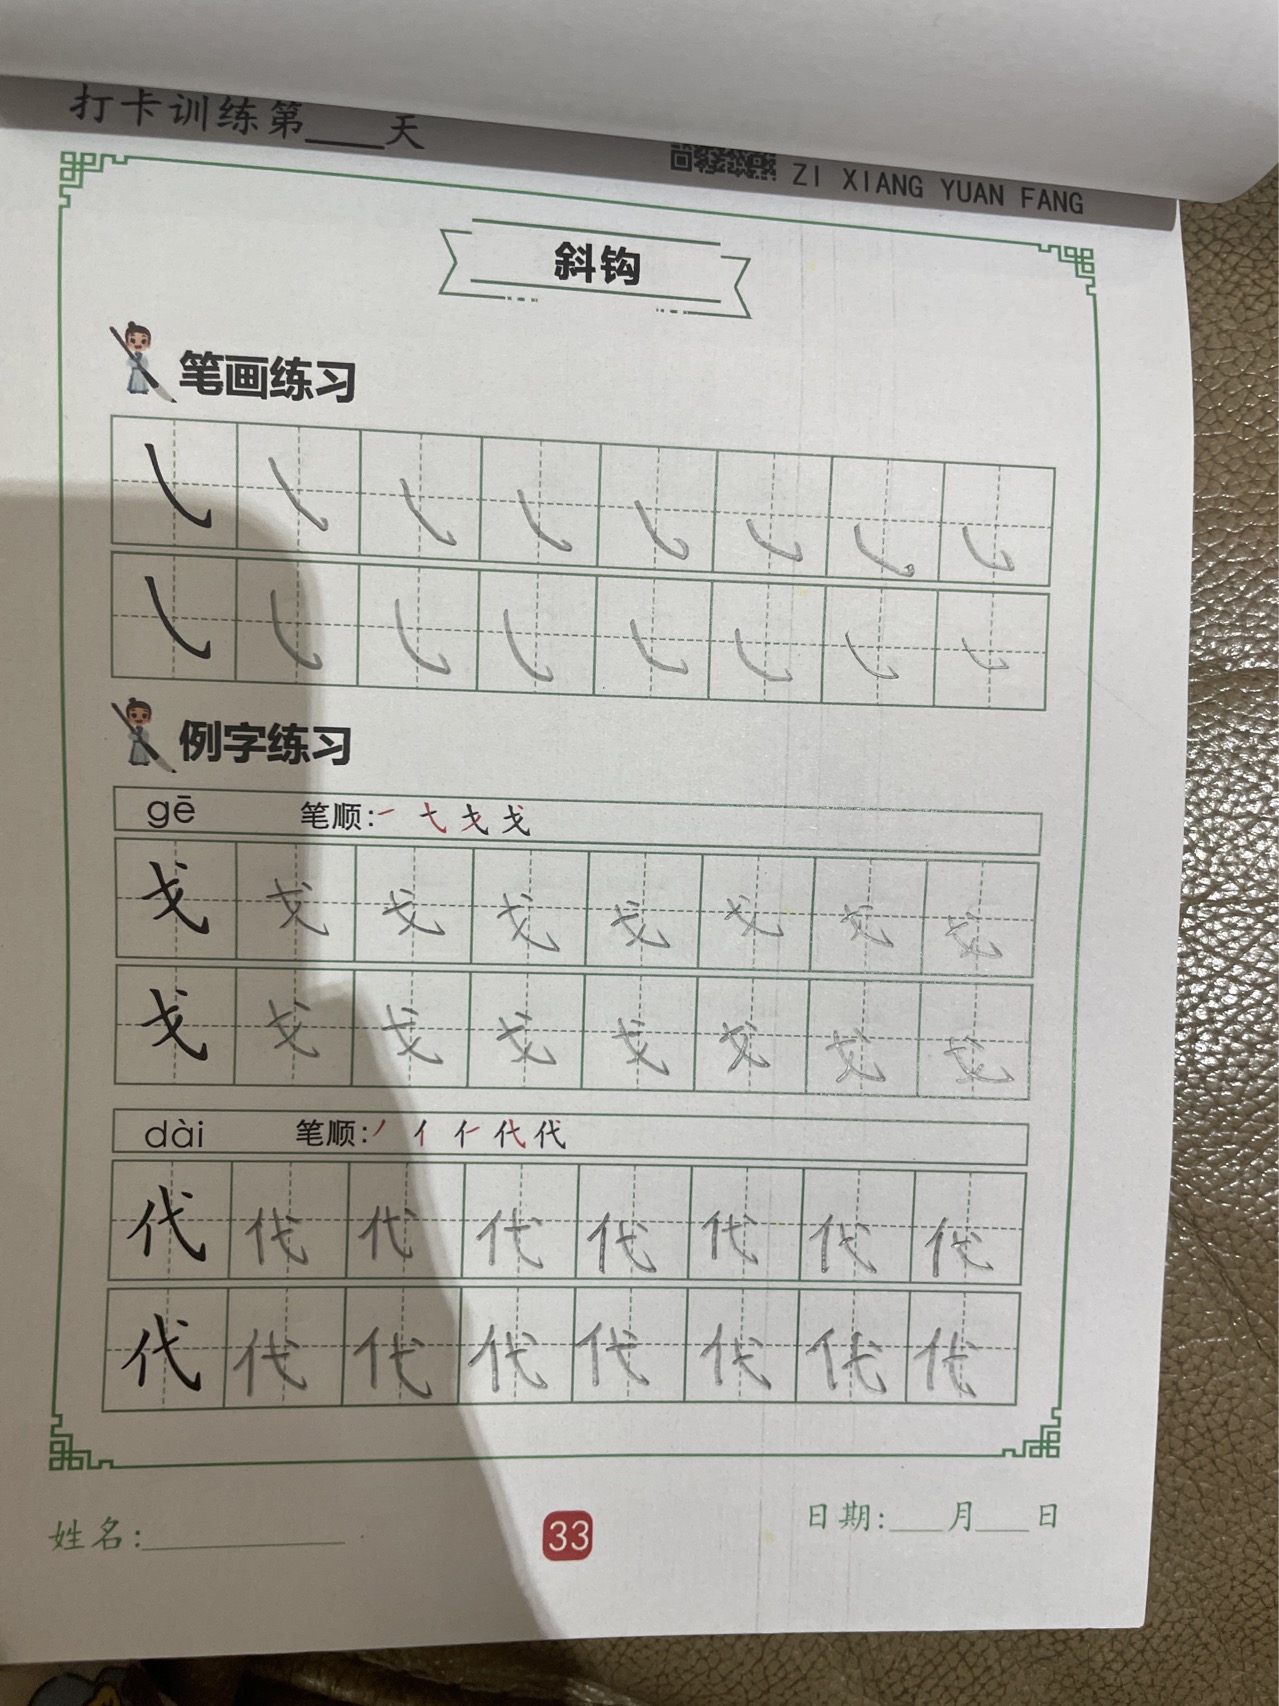 打卡训练第____天
ZI XIANG YUAN FANG
斜钩
笔画练习
㇂ ㇂ ㇂ ㇂ ㇂ ㇂ ㇂ ㇂
㇂ ㇂ ㇂ ㇂ ㇂ ㇂ ㇂ ㇂
例字练习
gē 笔顺:一 弋 戈 戈
戈 戈 戈 戈 戈 戈 戈 戈
戈 戈 戈 戈 戈 戈 戈 戈
dài 笔顺:丿 亻 代 代
代 代 代 代 代 代 代 代
代 代 代 代 代 代 代 代
姓名:____________
33
日期:____月____日